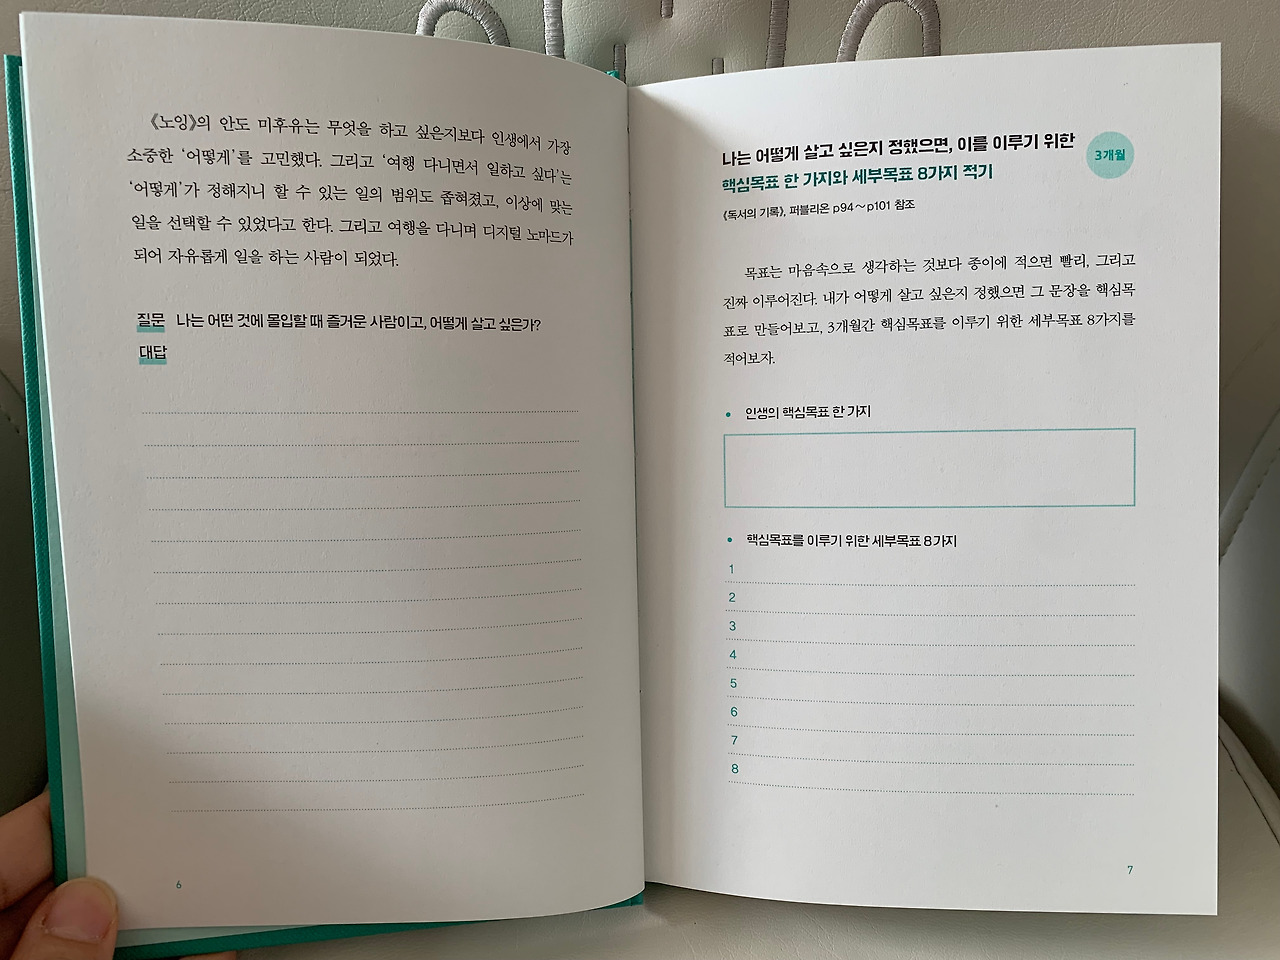 《노잉》의 안도 미후유는 무엇을 하고 싶은지보다 인생에서 가장
소중한 ‘어떻게’를 고민했다. 그리고 ‘여행 다니면서 일하고 싶다’는
‘어떻게’가 정해지니 할 수 있는 일의 범위도 좁혀졌고, 이상에 맞는
일을 선택할 수 있었다고 한다. 그리고 여행을 다니며 디지털 노마드가
되어 자유롭게 일을 하는 사람이 되었다.
질문 나는 어떤 것에 몰입할 때 즐거운 사람이고, 어떻게 살고 싶은가?
대답
6
나는 어떻게 살고 싶은지 정했으면, 이를 이루기 위한
핵심목표 한 가지와 세부목표 8가지 적기
3개월
《독서의 기록》, 퍼블리온 p94~p101 참조
목표는 마음속으로 생각하는 것보다 종이에 적으면 빨리, 그리고
진짜 이루어진다. 내가 어떻게 살고 싶은지 정했으면 그 문장을 핵심목
표로 만들어보고, 3개월간 핵심목표를 이루기 위한 세부목표 8가지를
적어보자.
• 인생의 핵심목표 한 가지
• 핵심목표를 이루기 위한 세부목표 8가지
1
2
3
4
5
6
7
8
7